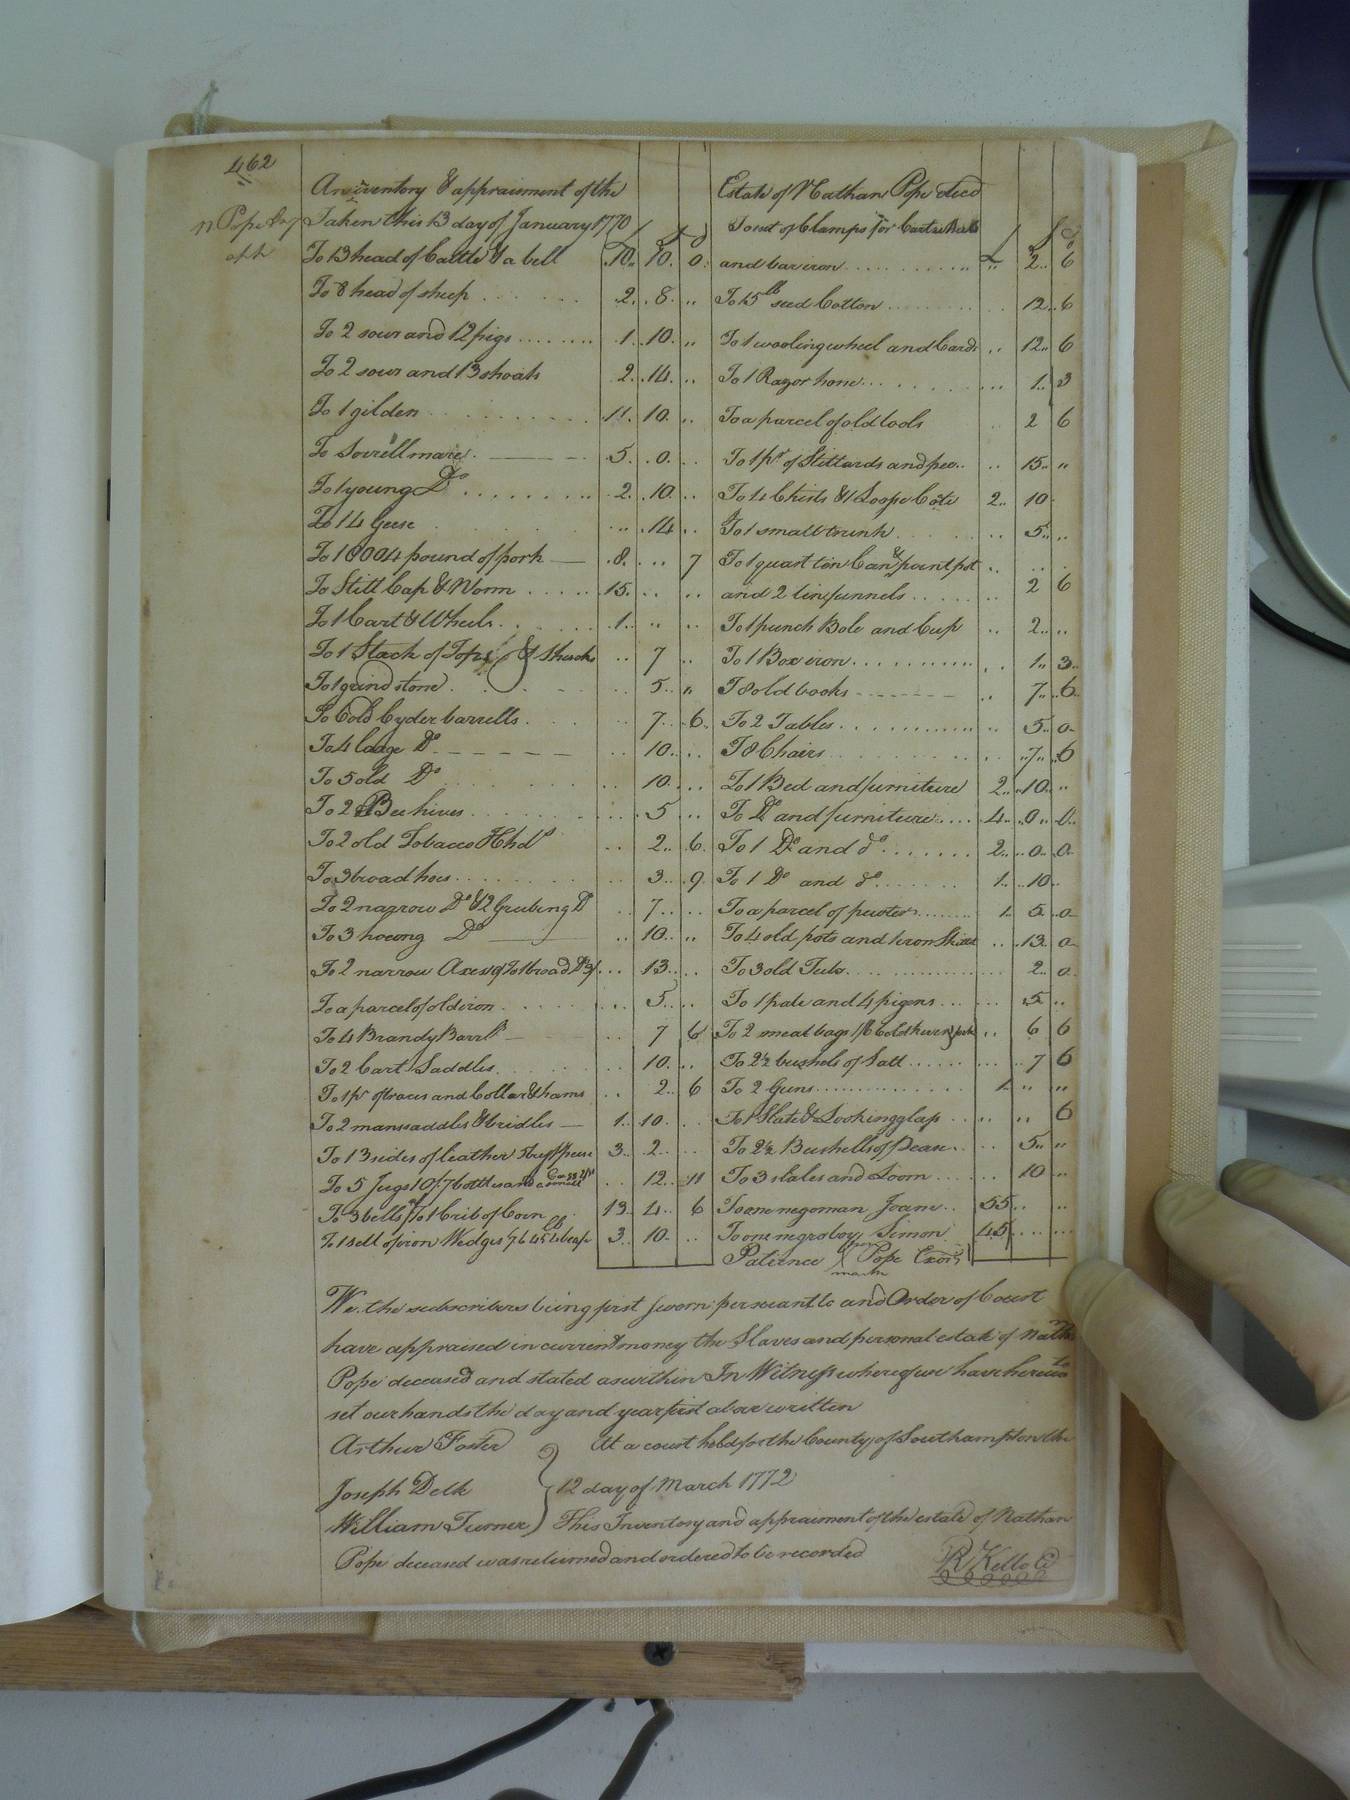 462
An inventory & appraisment of the
N Pope Inv
apt
Taken this 13 day of January 1770
£ s d
To 13 head of Cattle & a bell 10 10 0
To 8 head of sheep 2 8 "
To 2 sows and 12 pigs 1 10 "
To 2 sows and 13 shoats 2 14 "
To 1 gilden 11 10 "
To Sorrell mare 5 0
To 1 young Do 2 10
To 14 Geese " 14
To 10004 pound of pork 8 7
To Still Cap & Worm 15
To 1 Cart & Wheels 1 " "
To 1 Stack of Tops & Shucks 7 "
To 1 grind stone 5 "
To 6 old Cyder barrells 7 6
To 4 large Do 10
To 5 old Do 10
To 2 Bee hives 5
To 2 old Tobacco Hhds 2 6
To 3 broad hoes 3 9
To 2 nazrow Do & 2 Grubing Do 7
To 3 hoeing Do 10 "
To 2 narrow Axes To 1 broad Do 13
To a parcel of old iron 5
To 4 Brandy Barrls 7 6
To 2 Cart Saddles 10
To 1 pr of traces and Collar & hams 2 6
To 2 mans saddles & bridles 1 10
To 13 sides of leather 3 2
To 5 Jugs 10/ 7 bottles and a small 12 11
To 3 bells To 1 Crib of Corn 13 4 6
To 1 sett of iron Wedges 3 10
Estate of Nathan Pope decd
To set of Clamps for Cart wheels £ s d
and bar iron " 2 6
To 15 lb seed Cotton 12 6
To 1 wooling wheel and Cards 12 6
To 1 Razor hone 1 3
To a parcel of old tools 2 6
To 1 pr of Stillards and pea 15 "
To 4 Chists & 1 2 10
To 1 small trunk 5
To 1 quart tin Can & point pot
and 2 tin funnels 2 6
To 1 punch Bole and Cup 2 "
To 1 Box iron 1 3
To 8 old books 7 6
To 2 Tables 5 0
To 8 Chairs 7 6
To 1 Bed and furniture 2 10 "
To Do and furniture 4 0 0
To 1 Do and do 2 0 0
To 1 Do and do 1 10
To a parcel of puter 1 5 0
To 4 old pots and iron 13 0
To 3 old Tubs 2 0
To 1 pale and 4 pigens 5 "
To 2 meal bags 6 6
To 2½ bushels of Salt 7 6
To 2 Guns 1 " "
To 1 Slate & Lookingglass " " 6
To 2½ Bushells of Pease 5 "
To 3 slales and Loom 10 "
To one negoman Joam 55 "
To one negro boy Simon 45
Patience her X mark Pope Exors
We the subscribers being first sworn persuant to and Order of Court
have appraised in current money the Slaves and personal estate of Nathn
Pope deceased and stated as within In Witness whereof we have hereunto
set our hands the day and year first above written
Arthur Foster At a court held for the County of Southampton the
Joseph Delk 12 day of March 1772
William Turner This Inventory and appraisment of the estate of Nathan
Pope deceased was returned and ordered to be recorded
R Kello C